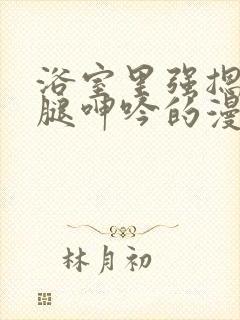 浴室里强摁
腿呻吟的漫
林月初